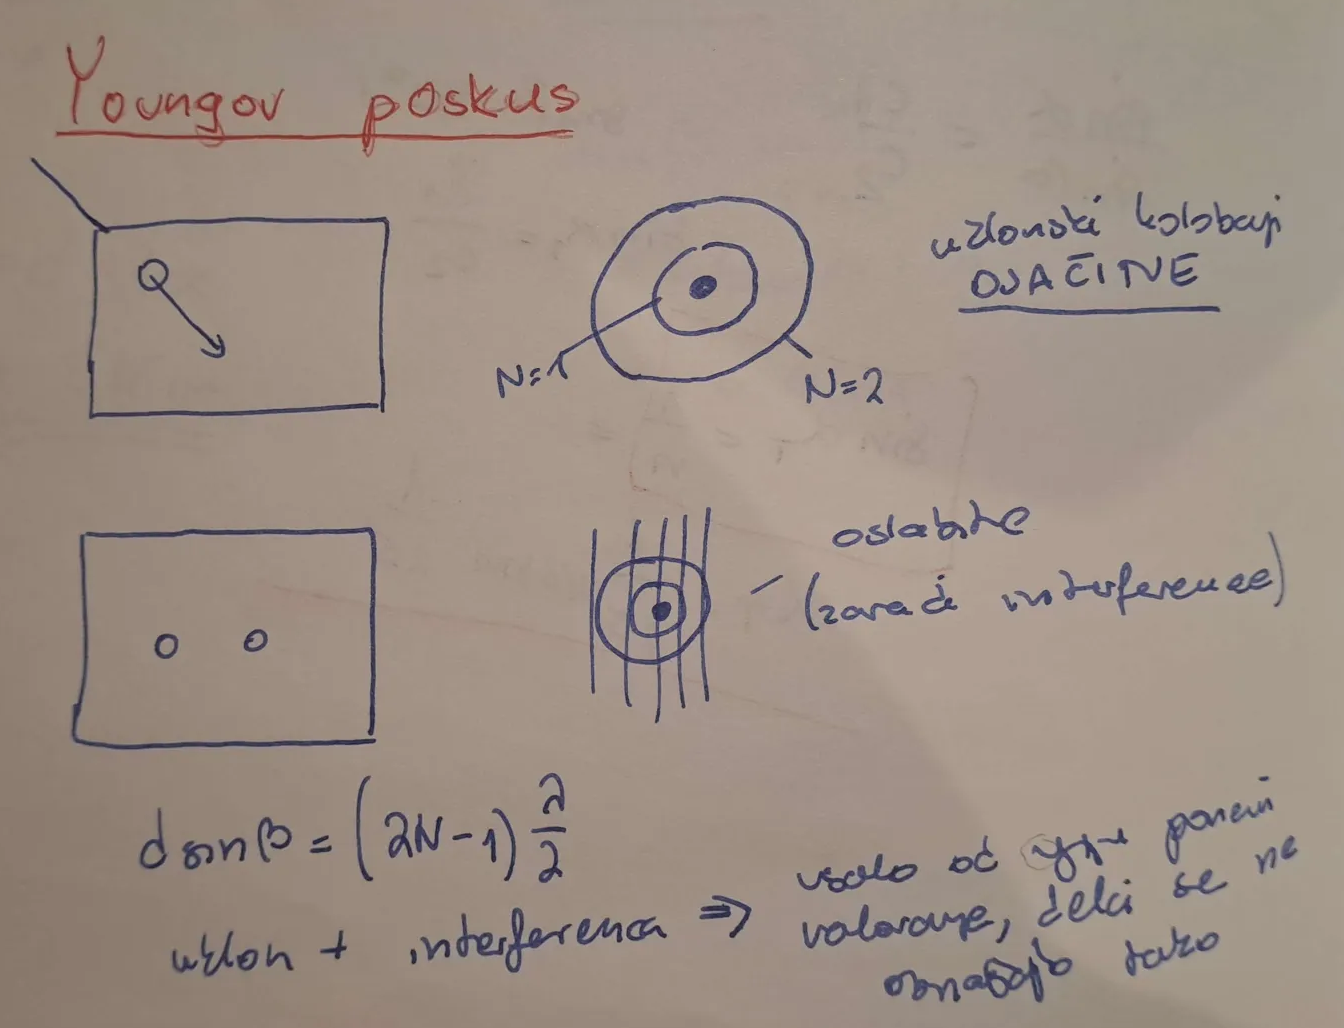 Youngov poskus
uklonski kolobarji
OJAČITVE
N=1
N=2
oslabitve
(zaradi interference)
d sin β = (2N-1) λ/2
uklon + interferenca ⇒
vsako od pomeni
valovanje, delci se ne
obnašajo tako